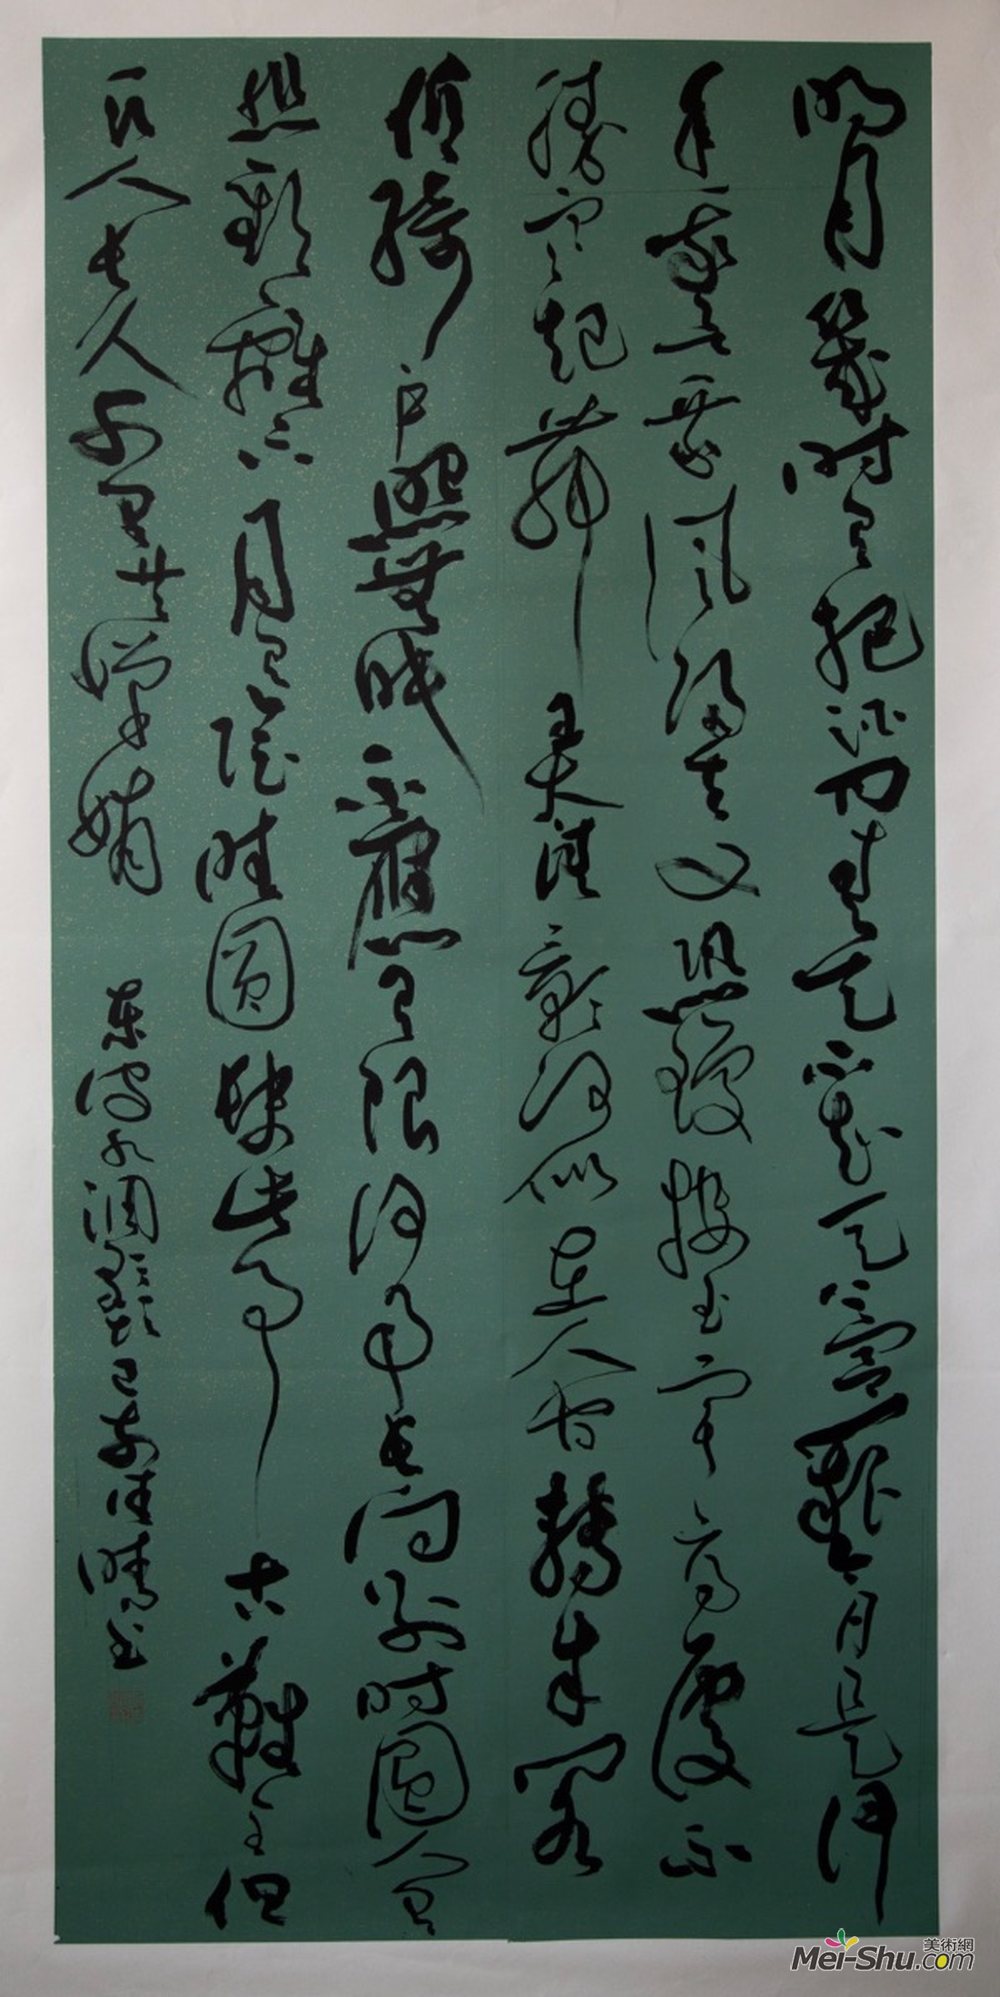 明月幾时有把酒问青天不知天上宫闕今夕是何
年我欲乘风归去又恐瓊楼玉宇高處不
勝寒起舞弄清影何似在人间轉朱阁
低绮户照無眠不應有恨何事长向别时圓人有
悲歡離合月有陰晴圆缺此事古難全但
愿人长久千里共嬋娟 东坡水调歌头 书
美術網
Mei-Shu.com